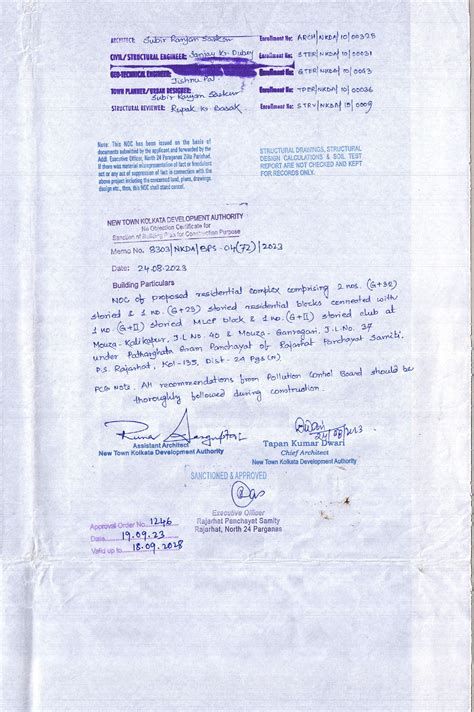 ARCHITECT: Subir Ranjan Sarkar Enrollment No: ARCH/NKDA/10/00325
CIVIL/STRUCTURAL ENGINEER: Sanjay Kr. Dubey Enrollment No: STER/NKDA/10/00031
GEO-TECHNICAL ENGINEER: Enrollment No: GTER/NKDA/10/0003
Jishnu Pal
TOWN PLANNER/URBAN DESIGNER: Enrollment No: TPER/NKDA/10/00036
Subir Ranjan Sarkar
STRUCTURAL REVIEWER: Rupak Kr. Basak Enrollment No: STRV/NKDA/10/0009
Note: This NOC has been issued on the basis of
documents submitted by the applicant and forwarded by the
Addl. Executive Officer, North 24 Parganas Zilla Parishad.
If there was material misrepresentation of fact or fraudulent
act or any act of supression of fact in connection with the
above project including the concerned land, plans, drawings
design etc., then, this NOC shall stand cancel.
STRUCTURAL DRAWINGS, STRUCTURAL
DESIGN CALCULATIONS & SOIL TEST
REPORT ARE NOT CHECKED AND KEPT
FOR RECORDS ONLY.
NEW TOWN KOLKATA DEVELOPMENT AUTHORITY
No Objection Certificate for
Sanction of Building Plan for Construction Purpose
Memo No. 8303/NKDA/BPS-04(72)/2023
Date: 24.08.2023
Building Particulars
NOC of proposed residential complex comprising 2 nos. (G+32)
storied & 1 no. (G+23) storied residential blocks connected with
1 no. (G+II) storied MLCP block & 1 no. (G+II) storied club at
Mouza - Kalikapur, J.L No. 40 & Mouza - Ganragari, J.L No. 37
under Patharghata Gram Panchayat of Rajarhat Panchayat Samiti,
P.S. Rajarhat, Kol-135, Dist - 24 Pgs (N).
PCB Note: All recommendations from Pollution Control Board should be
thoroughly followed during construction.
24/08/2023
Assistant Architect
New Town Kolkata Development Authority
Tapan Kumar Dwari
Chief Architect
New Town Kolkata Development Authority
SANCTIONED & APPROVED
Executive Officer
Rajarhat Panchayat Samity
Rajarhat, North 24 Parganas
Approval Order No. 1246
Date 19.09.23
Valid up to 18.09.2028